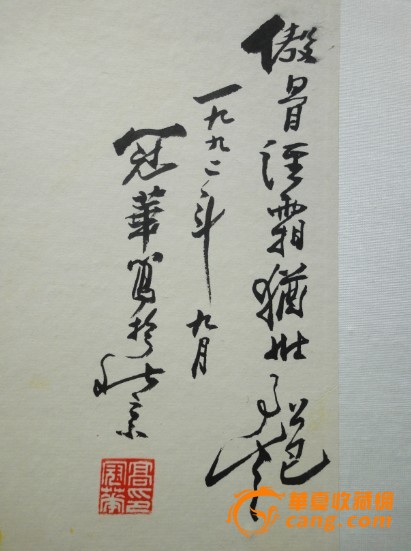 傲骨經霜猶壯
一九九二年 九月
冠華寫於北京
華夏收藏網
cang.com